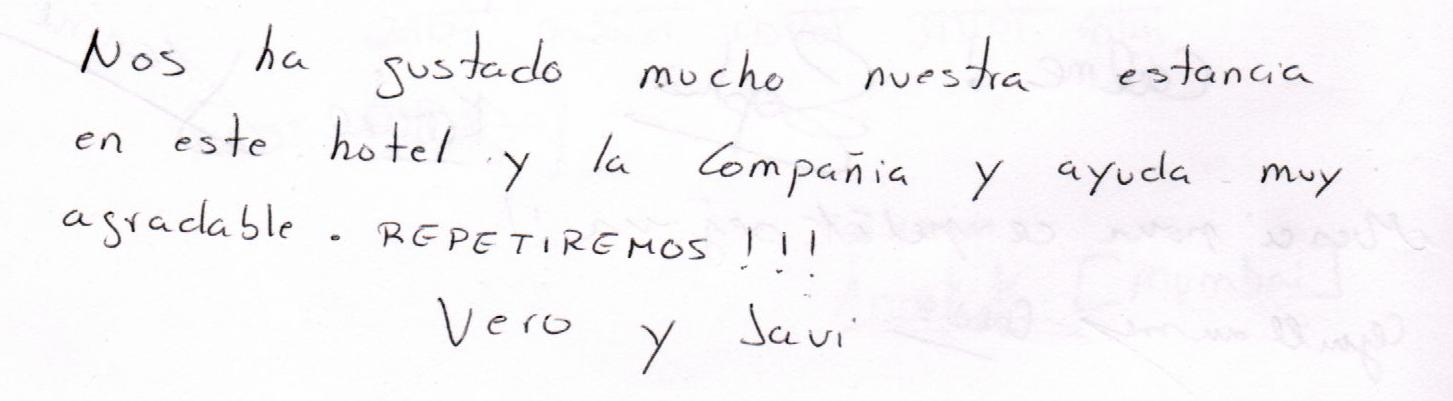 Nos ha gustado mucho nuestra estancia
en este hotel y la Compañia y ayuda muy
agradable. REPETIREMOS !!!
Vero y Javi